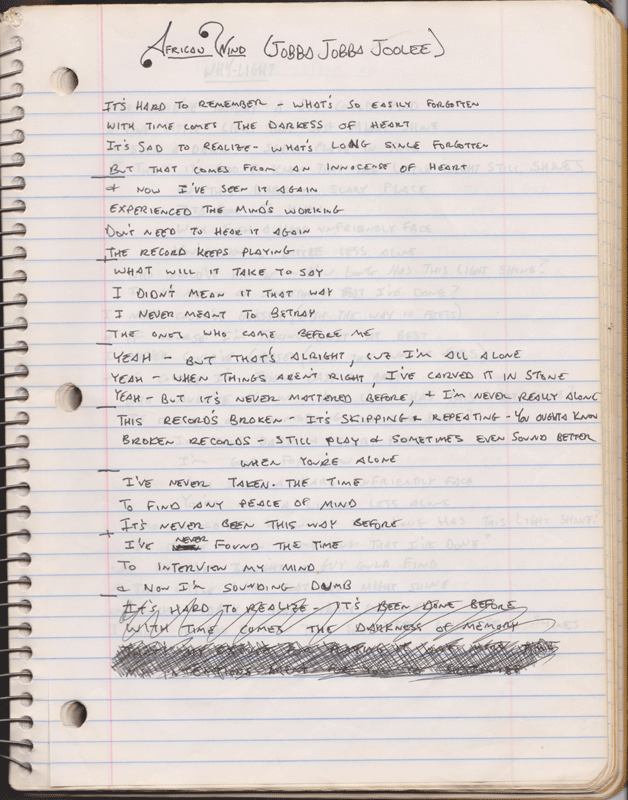 AFRICAN WIND (JOBBA JOBBA JOOLEE)
WHY-LIGHT
IT'S HARD TO REMEMBER - WHAT'S SO EASILY FORGOTTEN
WITH TIME COMES THE DARKESS OF HEART
IT'S SAD TO REALIZE - WHAT'S LONG SINCE FORGOTTEN
BUT THAT COMES FROM AN INNOCENSE OF HEART
+ NOW I'VE SEEN IT AGAIN
EXPERIENCED THE MIND'S WORKING
DON'T NEED TO HEAR IT AGAIN
THE RECORD KEEPS PLAYING
WHAT WILL IT TAKE TO SAY
I DIDN'T MEAN IT THAT WAY
I NEVER MEANT TO BETRAY
THE ONES WHO CAME BEFORE ME
YEAH - BUT THAT'S ALRIGHT, CUZ I'M ALL ALONE
YEAH - WHEN THINGS AREN'T RIGHT, I'VE CARVED IT IN STONE
YEAH - BUT IT'S NEVER MATTERED BEFORE, + I'M NEVER REALLY ALONE
THIS RECORD'S BROKEN - IT'S SKIPPING & REPEATING - YOU OUGHTA KNOW
BROKEN RECORDS - STILL PLAY & SOMETIMES EVEN SOUND BETTER
WHEN YOU'RE ALONE
I'VE NEVER TAKEN THE TIME
TO FIND ANY PEACE OF MIND
IT'S NEVER BEEN THIS WAY BEFORE
+ I'VE NEVER FOUND THE TIME
TO INTERVIEW MY MIND
& NOW I'M SOUNDING DUMB
IT'S HARD TO REALIZE - IT'S BEEN DONE BEFORE
WITH TIME COMES THE DARKNESS OF MEMORY